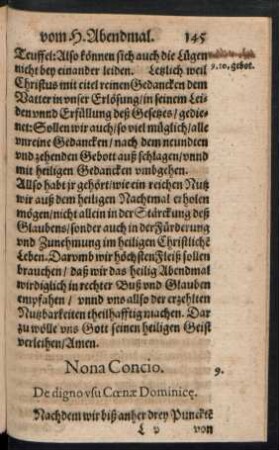 vom H. Abendmal. 145
Teuffel: Also können sich auch die Lügen
nicht bey einander leiden. Letzlich weil
9. 10. gebot.
Christus mit eitel reinen Gedancken dem
Vatter in vnser Erlösung / in seinem Lei-
den vnnd Erfüllung deß Gesetzes / gedie-
net: Sollen wir auch / so viel müglich / alle
vnreine Gedancken / nach dem neundten
vnd zehenden Gebott auß schlagen / vnnd
mit heiligen Gedancken vmbgehen.
Allso habt jr gehört / wie ein reichen Nutz
wir auß dem heiligen Nachtmal erholen
mögen / nicht allein in der Stärckung deß
Glaubens / sonder auch in der Fürderung
vnd Zunemung im heiligen Christlichē
Leben. Darumb wir höchsten Fleiß sollen
brauchen / daß wir das heilig Abendmal
wirdiglich in rechter Buß vnd Glauben
empfahen / vnnd vns allso der erzehlten
Nutzbarkeiten theilhafftig machen. Dar
zu wölle vns Gott seinen heiligen Geist
verleihen / Amen.
Nona Concio. 9.
De digno vsu Cœnæ Dominicę.
Nachdem wir biß anher drey Punckte
L v von